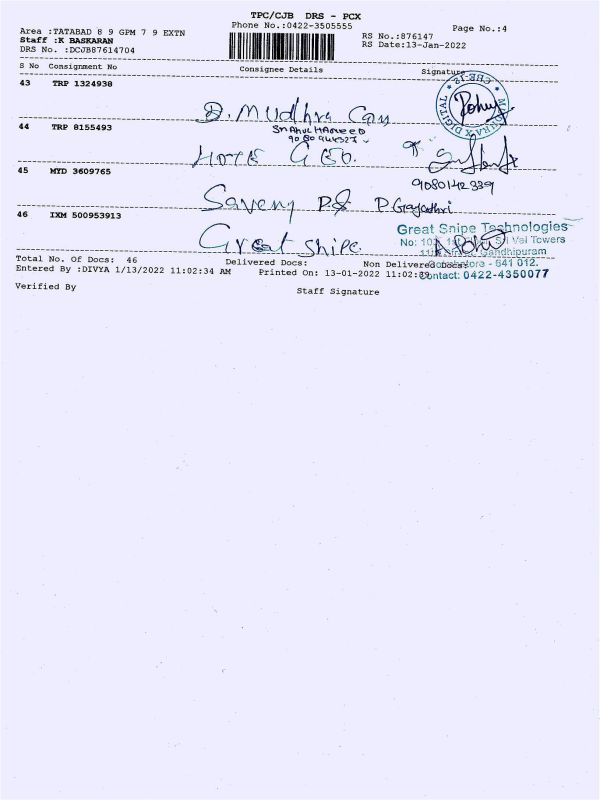 TPC/CJB DRS - PCX
Phone No.:0422-3505555
Page No.:4
Area :TATABAD 8 9 GPM 7 9 EXTN
Staff :K BASKARAN
DRS No. :DCJB87614704
RS No.:876147
RS Date:13-Jan-2022
S No Consignment No Consignee Details Signature
43 TRP 1324938
D. Mudhra Can
44 TRP 8155493
9080944327
Hote Geo.
9080142339
45 MYD 3609765
Saveny P. Gayathri
46 IXM 500953913
Great snipe
Great Snipe Technologies
No: 102, Sri Vel Towers
Gandhipuram
Coimbatore - 641 012.
Contact: 0422-4350077
Total No. Of Docs: 46 Delivered Docs: Non Delivered Docs:
Entered By :DIVYA 1/13/2022 11:02:34 AM Printed On: 13-01-2022 11:02:39
Verified By
Staff Signature